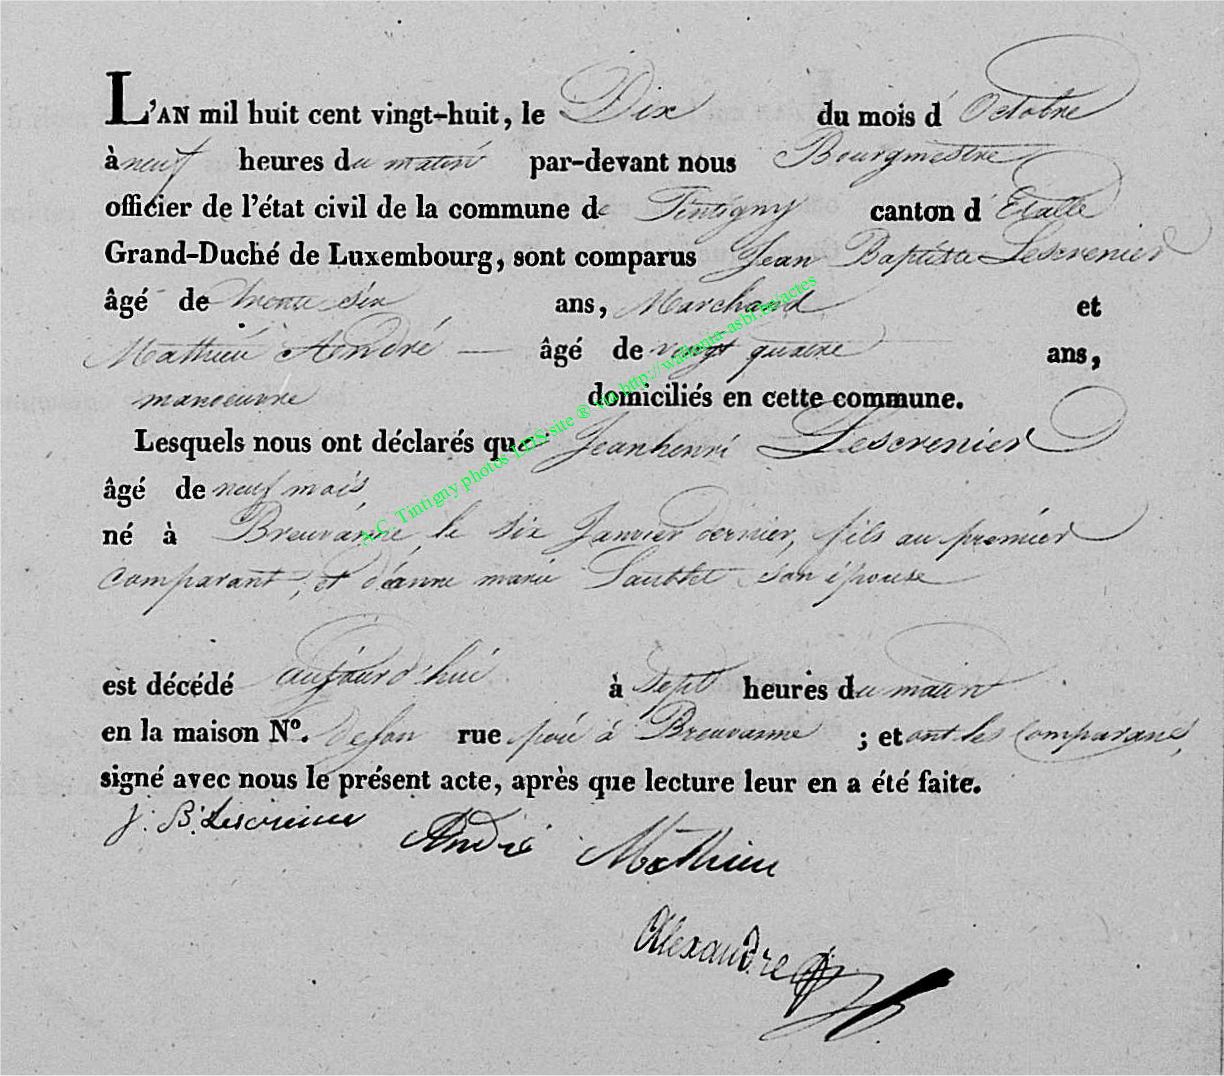 L'AN mil huit cent vingt-huit, le Dix du mois d'Octobre
à neuf heures du matin par-devant nous Bourgmestre
officier de l'état civil de la commune de Tintigny canton d'Etalle
Grand-Duché de Luxembourg, sont comparus Jean Baptiste Lescrenier
âgé de trente six ans, Marchand et
Mathieu André — âgé de vingt quatre ans,
manoeuvre domiciliés en cette commune.
Lesquels nous ont déclarés que Jeanhenri Lescrenier
âgé de neuf mois
né à Breuvanne, le six Janvier dernier, fils au prémier
comparant, et d'anne marie son épouse
est décédé aujourd'hui à Sept heures du matin
en la maison N°. de son rue à Breuvanne ; et ont les comparans,
signé avec nous le présent acte, après que lecture leur en a été faite.
J. B. Lescrenier André Mathieu
Alexandre
A.C. Tintigny photos LDS site ® via http://wallonia-asbl.be/actes